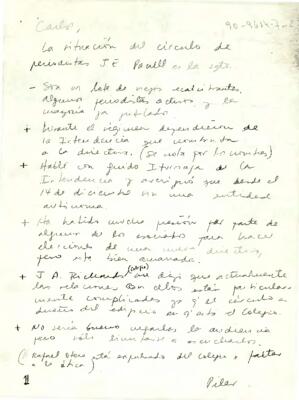 90-9614-7-2
Carlos,
La situación del círculo de
periodistas J E Powell es la sgte.
- Son un lote de viejos recalcitrantes,
algunos periodistas activos y la
mayoría ya jubilados
+ Durante el régimen dependieron de
la Intendencia que nombraba
a la directiva. (Se nota por los nombres)
+ Hablé con Guido Iturriaga de la
Intendencia y averiguó que desde el
14 de Diciembre son una entidad
autónoma
+ Ha habido mucha presión por parte de
algunos de los asociados para hacer
elecciones de una nueva directiva,
pero está bien amarrada.
+ J. A. Richards me dijo que actualmente
las relaciones con ellos están particular-
mente complicadas ya q' el círculo es
dueño del edificio en q' está el colegio.
+ No sería bueno negarles la audiencia
pero sólo limitarse a escucharlos.
(Rafael Otero está expulsado del colegio x faltar
a la ética)
Pilar
1